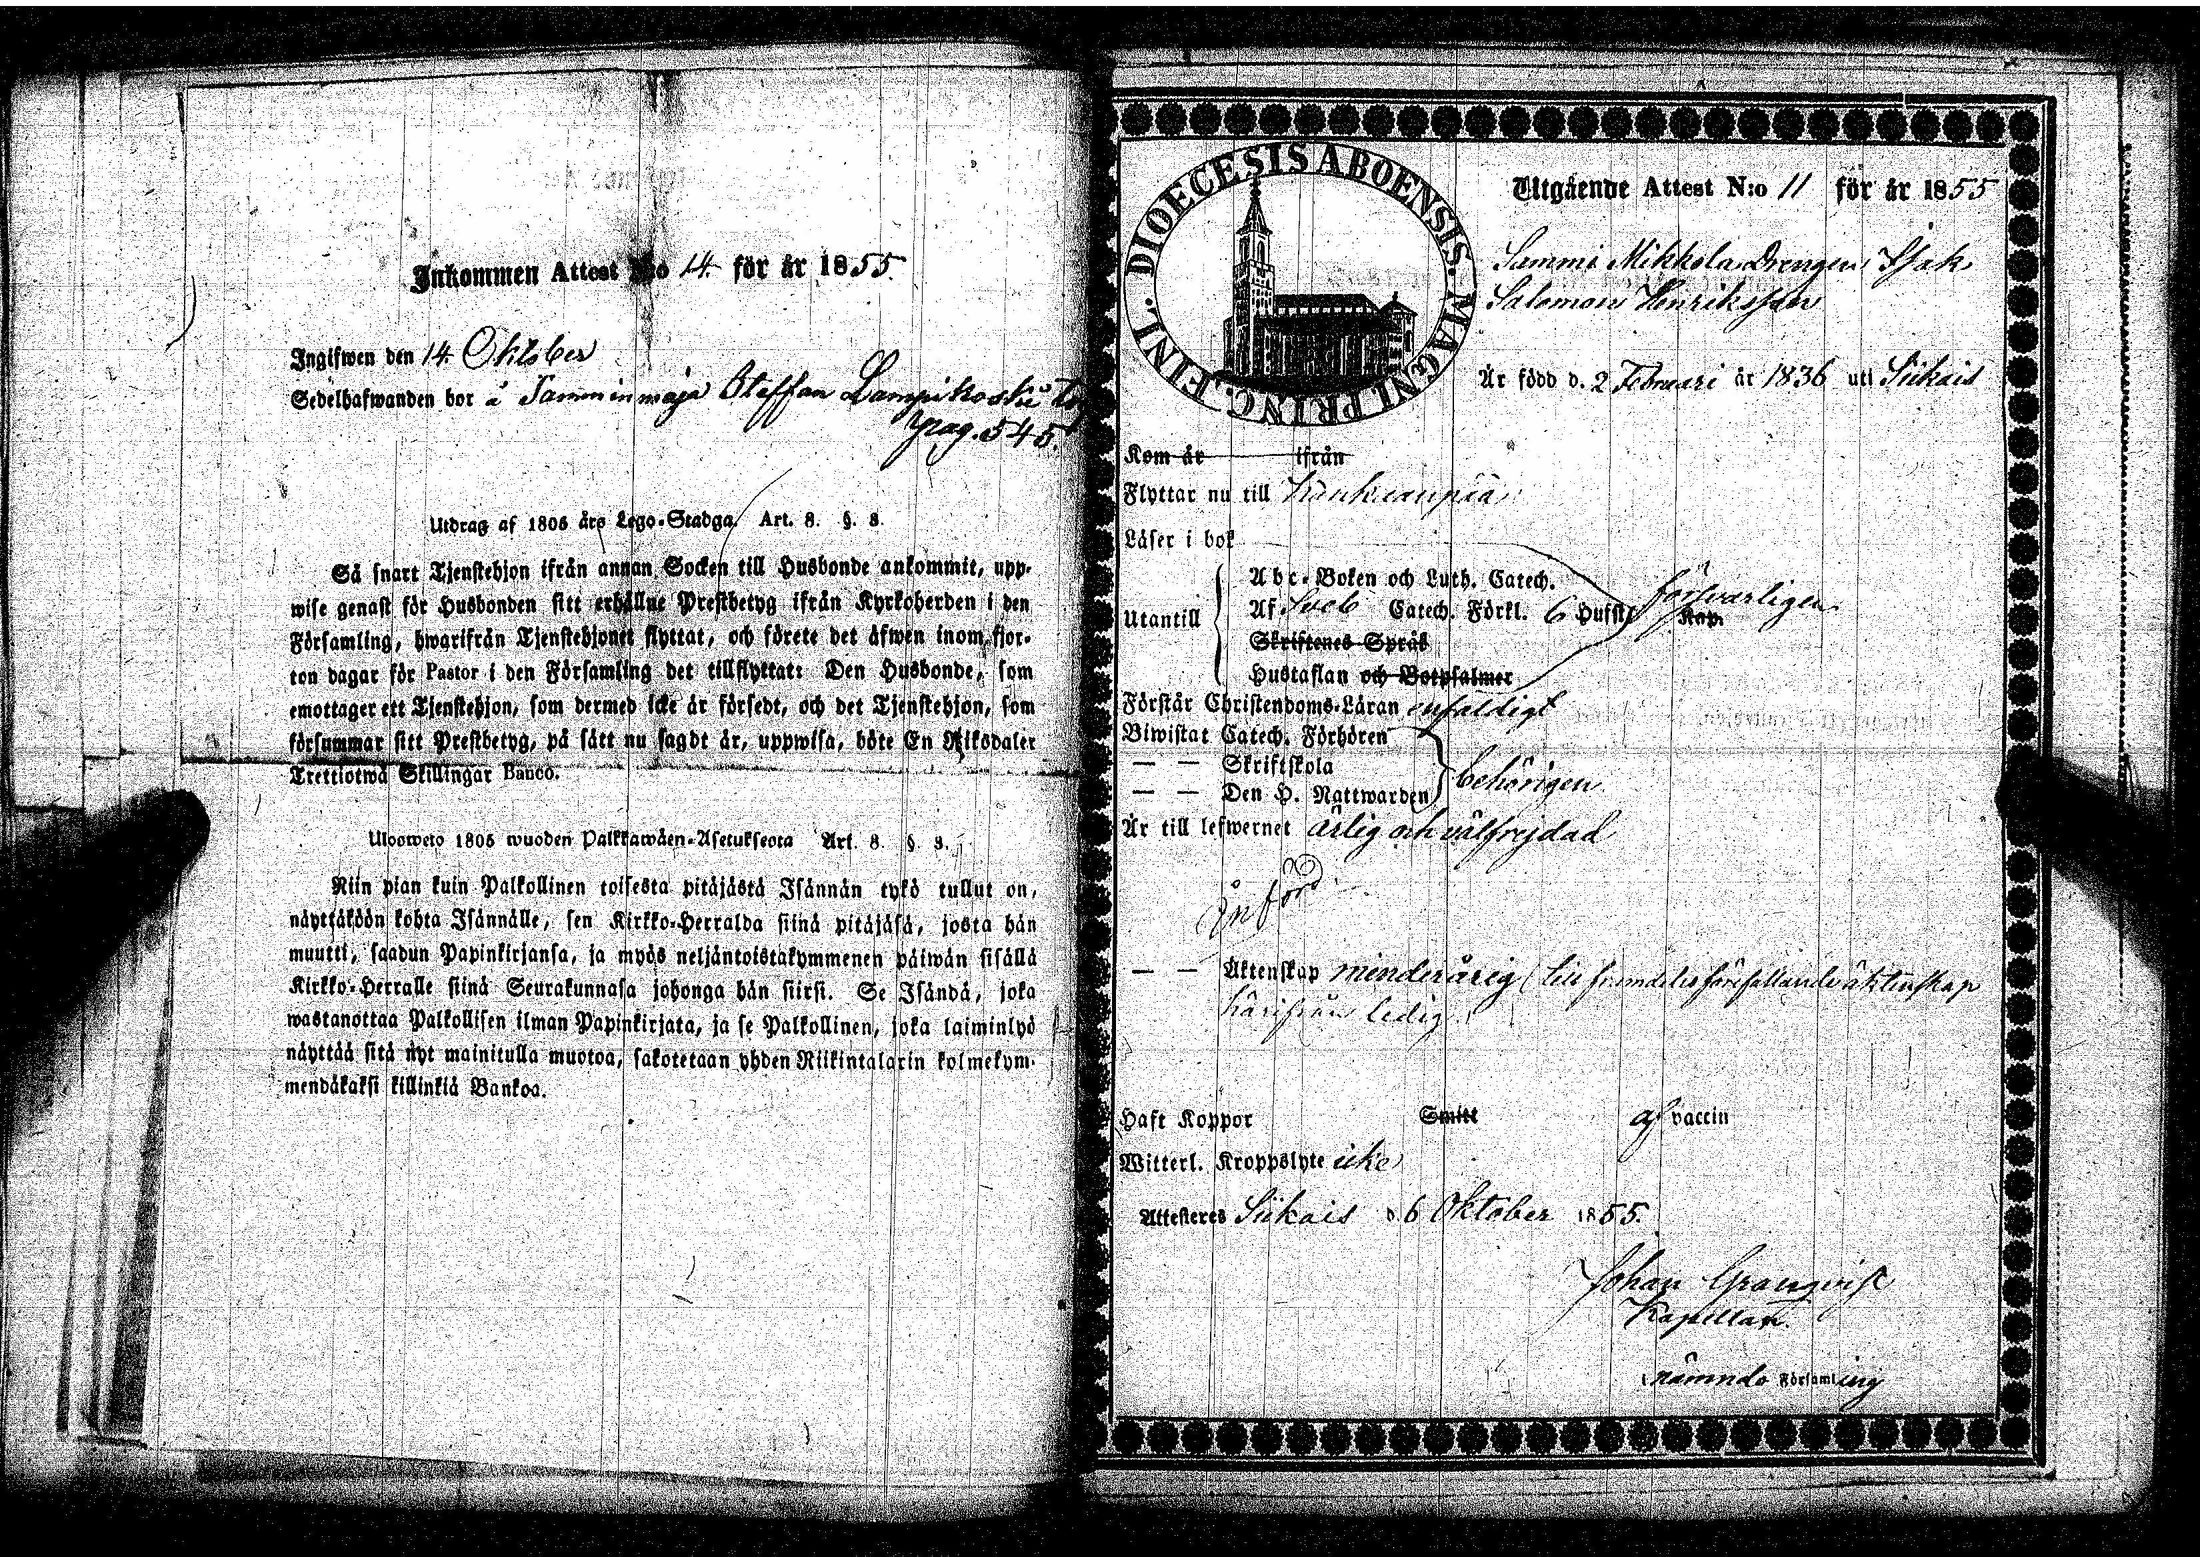 Inkommen Attest N:o 14 för år 1855.
Ingifwen den 14 Oktober
Sedelhafwanden bor å Tamminmaja Staffan Lampikoski
pag. 545.
Utdrag af 1805 års Lego-Stadga. Art. 8. §. 8.
Så snart Tjenstehjon ifrån annan Socken till Husbonde ankommit, upp-
wise genast för Husbonden sitt erhållne Prestbetyg ifrån Kyrkoherden i den
Församling, hwarifrån Tjenstehjonet flyttat, och förete det äfwen inom fjor-
ton dagar för Pastor i den Församling det tillflyttat: Den Husbonde, som
emottager ett Tjenstehjon, som dermed icke är försedt, och det Tjenstehjon, som
försummar sitt Prestbetyg, på sätt nu sagdt är, uppwisa, böte En Riksdaler
Trettiotwå Skillingar Banco.
Ulosweto 1805 wuoden Palkkawäen-Asetuksesta Art. 8. §. 8.
Niin pian kuin Palkollinen toisesta pitäjästä Isännän tykö tullut on,
näyttäköön kohta Isännälle, sen Kirkko-Herralda siinä pitäjäsä, josta hän
muutti, saadun Papinkirjansa, ja myös neljäntoistakymmenen päiwän sisällä
Kirkko-Herralle siinä Seurakunnasa johonga hän siirsi. Se Isändä, joka
wastanottaa Palkollisen ilman Papinkirjata, ja se Palkollinen, joka laiminlyö
näyttää sitä nyt mainitulla muotoa, sakotetaan yhden Riikintalarin kolmekym-
mendäkaksi killinkiä Bankoa.
DIOECESIS ABOENSIS. MAGNI. PRINC. FINL.
Utgående Attest N:o 11 för år 1855
Sammi Mikkola Drengen Isak
Salomon Henriksson
Är född d. 2 Februari år 1836 uti Siikais
Kom år ifrån
Flyttar nu till Kankaanpää
Läser i bok
Utantill
Abc-Boken och Luth. Catech.
Af Sveb Catech. Förkl. 6 Hufst. Kap. försvarligen
Skriftenes Språk
Hustaflan och Botpsalmer
Förstår Christendoms-Läran enfaldigt
Biwistat Catech. Förhören
— — Skriftskola
— — Den H. Nattwarden behörigen
Är till lefwernet ärlig och välfrejdad
Införd
— — Äktenskap minderårig (till framdeles förefallande äktenskap
härifrån ledig
Haft Koppor Smitt af vaccin
Witterl. Kroppslyte icke
Attesteres Siikais d. 6 Oktober 1855.
Johan Granqvist
Kapellan.
nämnde Församling